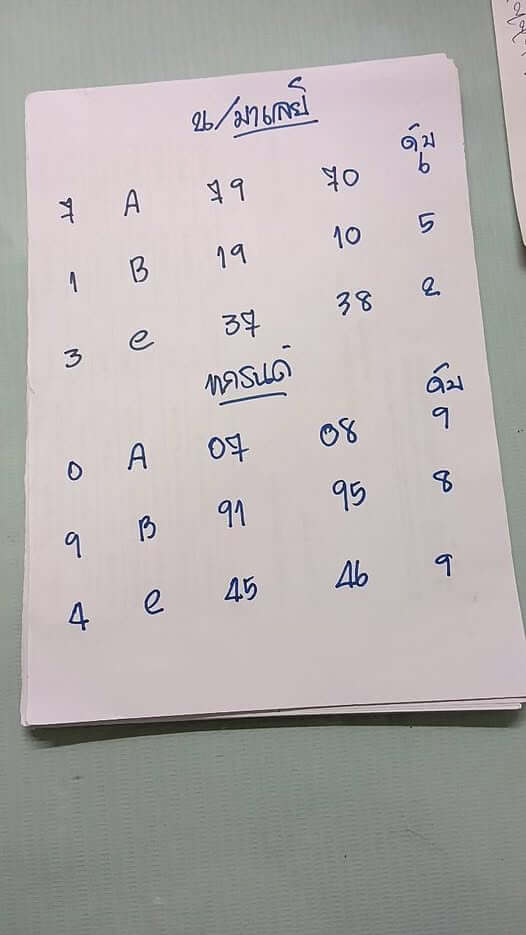 น/มาเลย์
ดับ
7 A 79 70 6
1 B 19 10 5
3 e 37 38 2
เทรนด์
ดับ
0 A 07 08 9
9 B 91 95 8
4 e 45 46 9